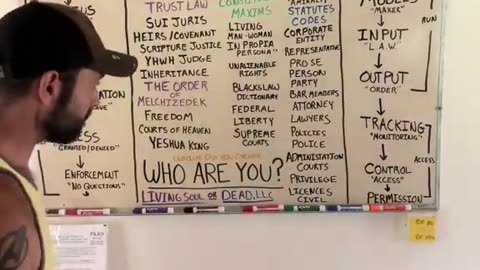 TRUST LAW
SUI JURIS
HEIRS/COVENANT
SCRIPTURE JUSTICE
YHWH JUDGE
INHERITANCE
THE ORDER
OF
MELCHIZEDEK
FREEDOM
COURTS OF HEAVEN
YESHUA KING
MAXIMS
LIVING
MAN-WOMAN
IN PROPIA
PERSONA"
UNALIENABLE
RIGHTS
BLACKSLAW
DICTIONARY
FEDERAL
LIBERTY
SUPREME
COURTS
STATUTES
CODES
CORPORATE
ENTITY
REPRESENTATIVE
PROSE
PERSON
PARTY
BAR MEMBERS
ATTORNEY
LAWYERS
POLICIES
POLICE
ADMINISTRATION
COURTS
PRIVILEGE
LICENCES
CIVIL
WHO ARE YOU?
LIVING SOUL OR DEAD, LLC
"MAKER"
RUN
INPUT
"L.A.W."
OUTPUT
"ORDER"
TRACKING
"MONITORING"
ACCESS
CONTROL
"ACCESS"
PERMISSION
"GRANTED/DENIED"
ENFORCEMENT
"NO QUESTIONS"
FILED